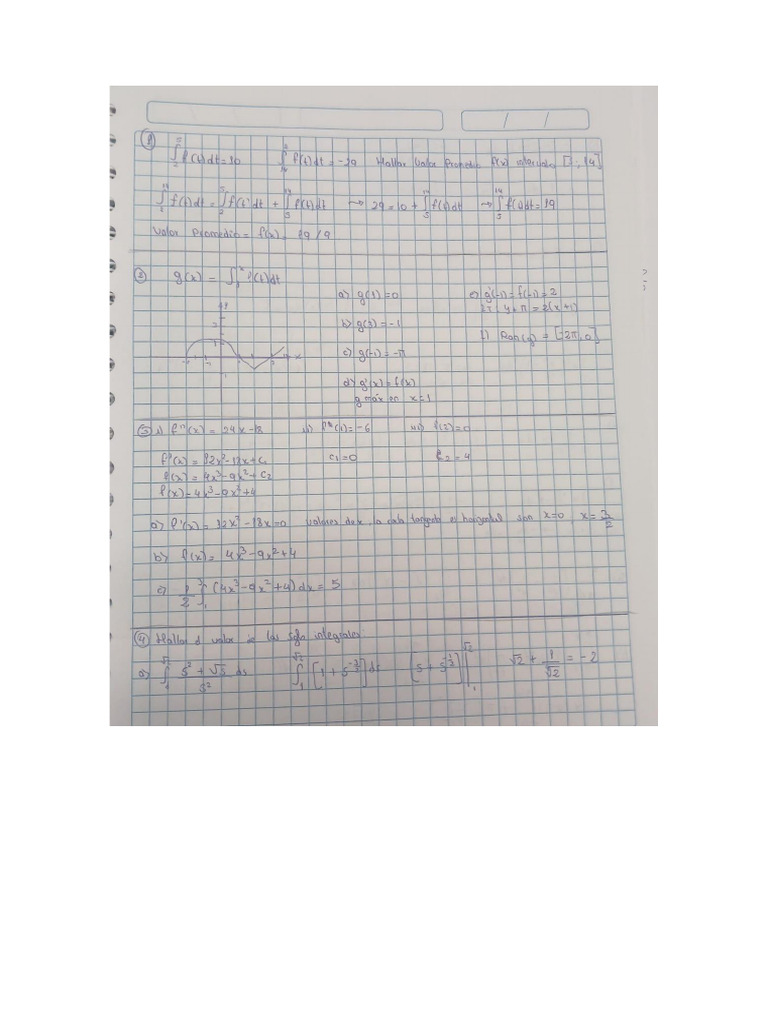 / /
① ∫ f(t)dt=10 ∫ f(t)dt=-29 Hallar Valor Promedio f(x) intervalo [5, 14]
∫ f(t)dt = ∫ f(t)dt + ∫ f(t)dt → 29=10+∫ f(t)dt → ∫ f(t)dt=19
Valor Promedio = f(x) = 19/9
③ g(x) = ∫₁ˣ f(t)dt
a) g(1)=0 e) g'(-1)=f(-1)=2
2π; y+π=2(x+1)
b) g(3)=-1
f) Ran(g) = [-2π, 0]
c) g(-1)=-π
d) g'(x)=f(x)
g máx en x=1
⑤ i) f''(x) = 24x-18 ii) f'(1)=-6 iii) f(2)=0
f'(x) = 12x²-18x+C₁ C₁=0 C₂=4
f(x) = 4x³-9x²+C₂
f(x)=4x³-9x²+4
a) f'(x) = 12x²-18x=0 valores de x, la cual tangente es horizontal son x=0, x=3/2
b) f(x) = 4x³-9x²+4
c) 1/2 ∫₁³ (4x³-9x²+4)dx = 5
④ Hallar el valor de las sgts integrales:
a) ∫₁^√2 s²+√s/s² ds ∫₁^√2 [1+s^(-3/2)]ds [s+s^(-1/2)]|₁^√2 √2+1/√2 = -2